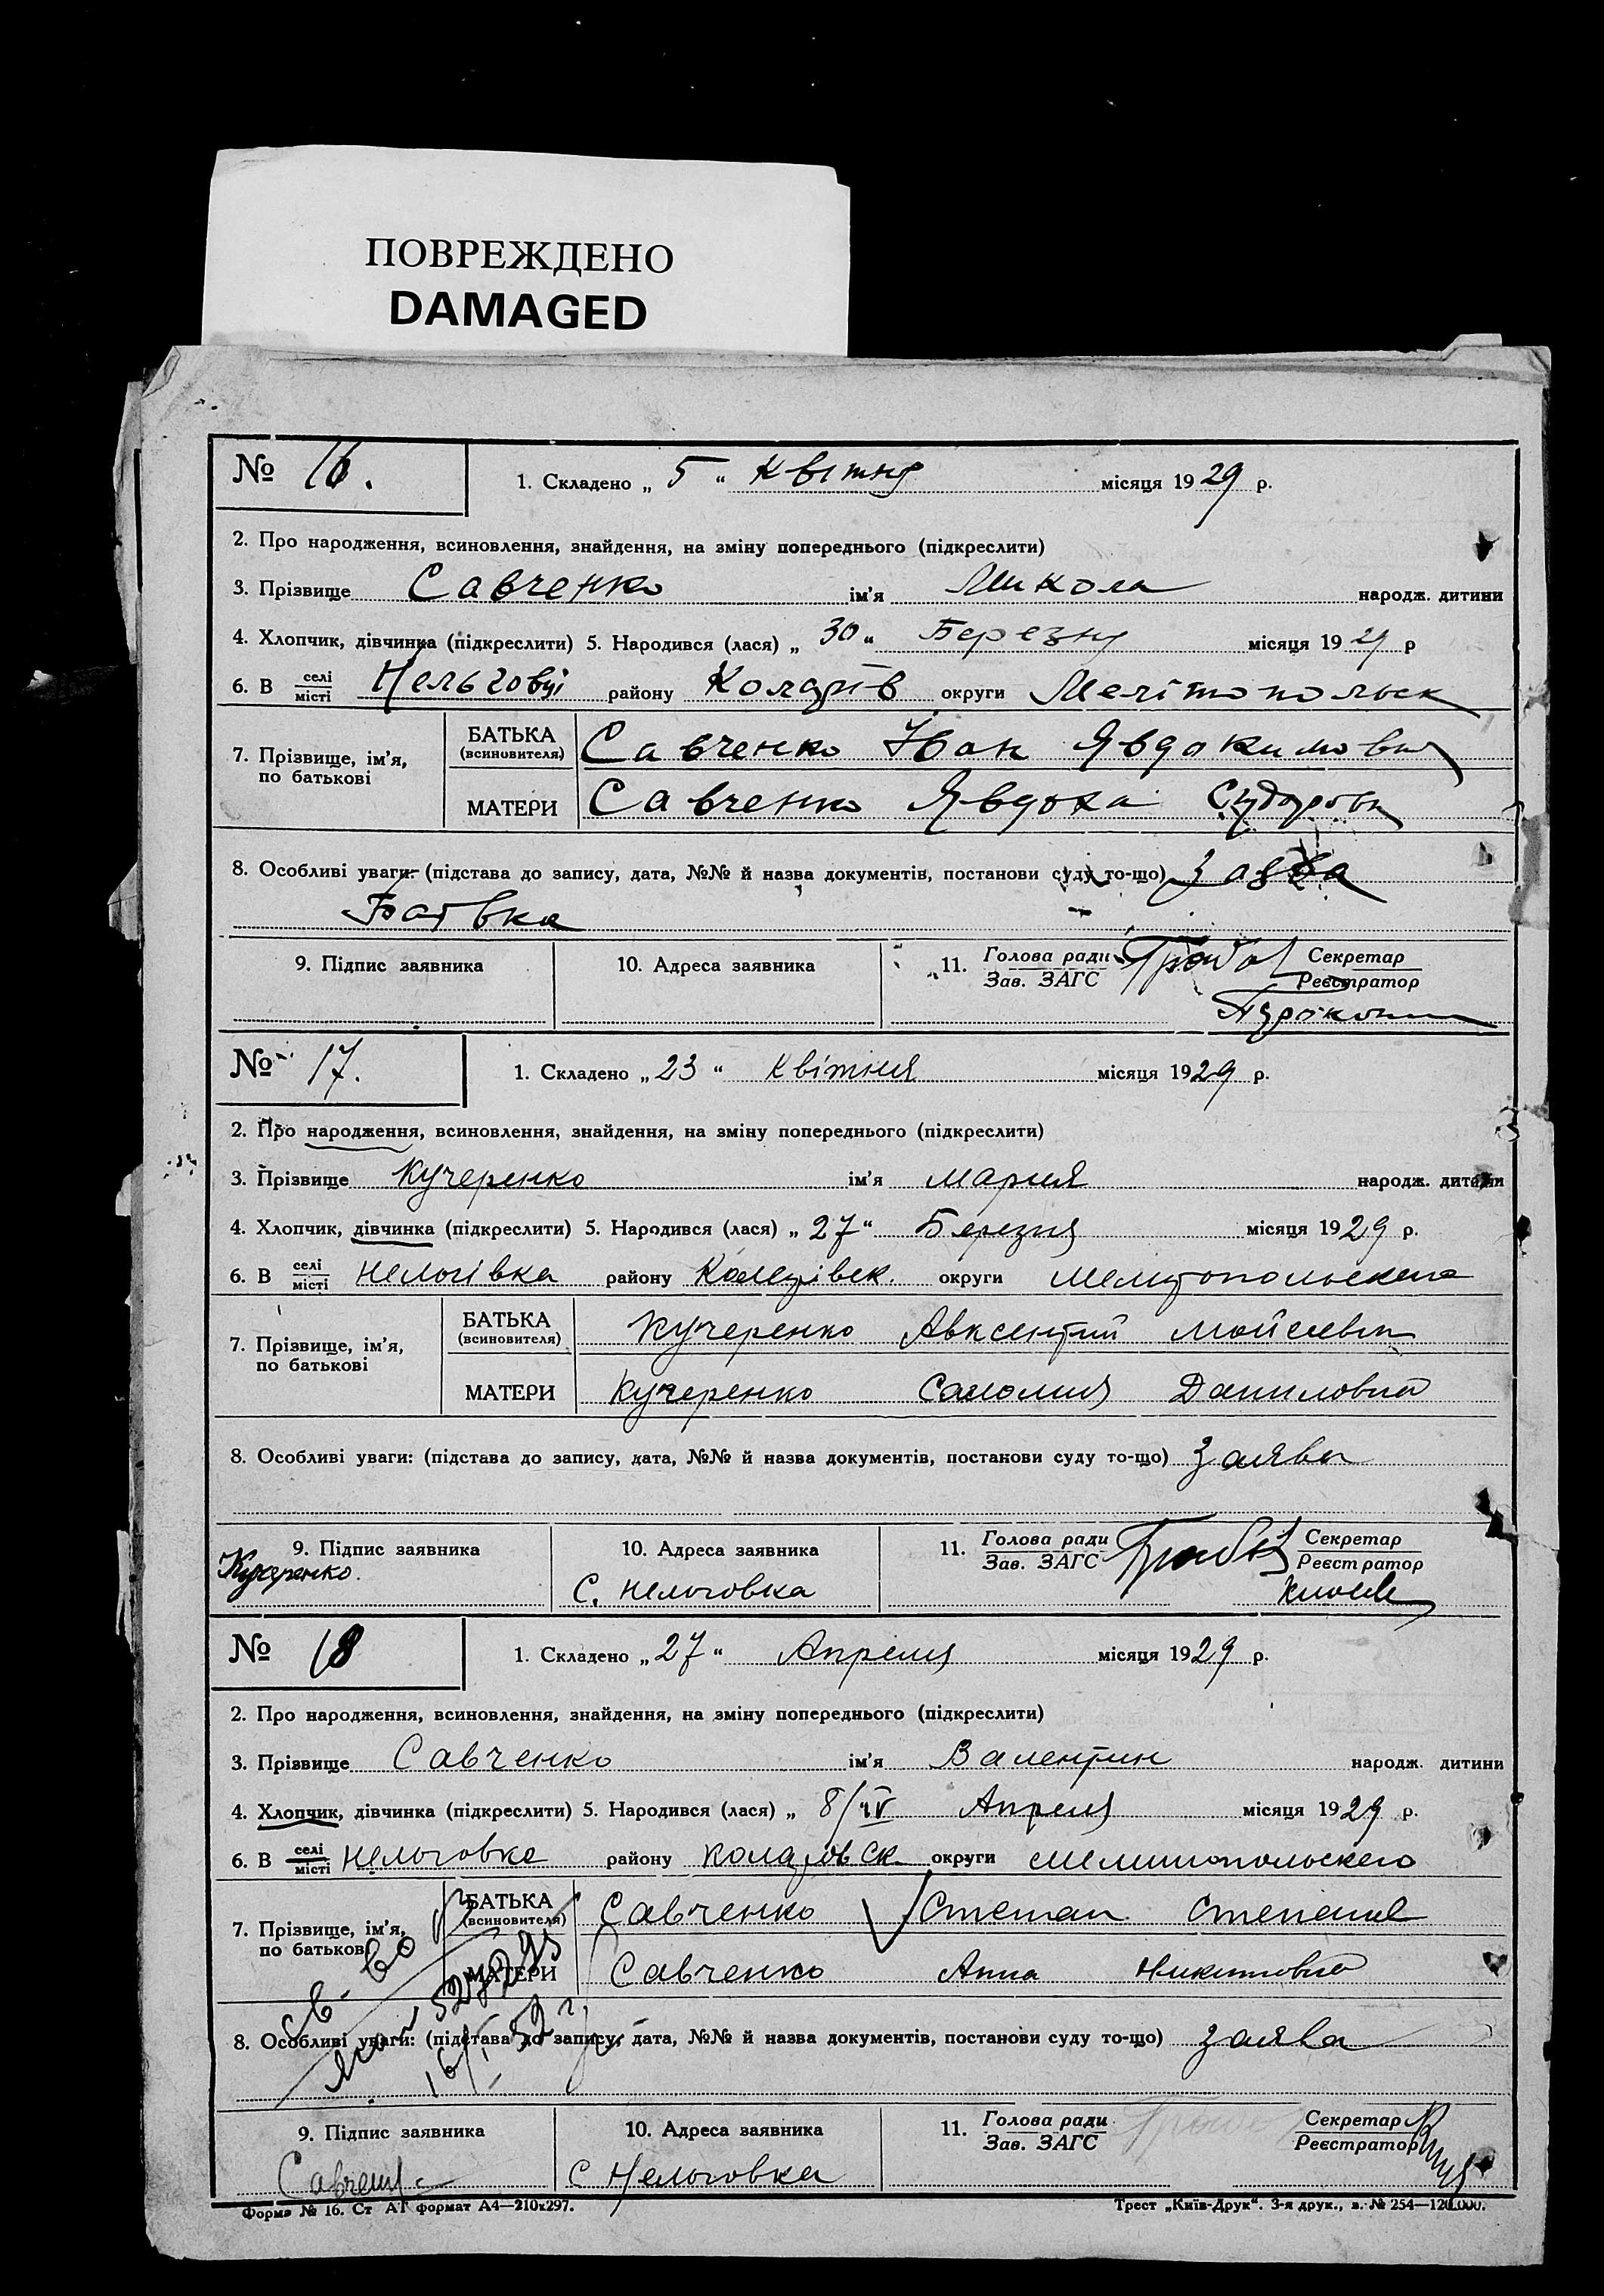 ПОВРЕЖДЕНО
DAMAGED
№ 16. 1. Складено „ 5 “ Квітня місяця 1929 р.
2. Про народження, всиновлення, знайдення, на зміну попереднього (підкреслити)
3. Прізвище Савченко ім'я Микола народж. дитини
4. Хлопчик, дівчинка (підкреслити) 5. Народився (лася) „ 30 “ Березня місяця 1929 р
6. В селі місті Нельговці району округи Мелітопольск
7. Прізвище, ім'я, по батькові
БАТЬКА (всиновителя) Савченко Іван
МАТЕРИ Савченко Явдоха
8. Особливі уваги: (підстава до запису, дата, №№ й назва документів, постанови суду то-що) Заява
Батька
9. Підпис заявника 10. Адреса заявника 11. Голова ради Зав. ЗАГС Секретар Реєстратор
№ 17. 1. Складено „ 23 “ квітня місяця 1929 р.
2. Про народження, всиновлення, знайдення, на зміну попереднього (підкреслити)
3. Прізвище Кучеренко ім'я Мария народж. дитини
4. Хлопчик, дівчинка (підкреслити) 5. Народився (лася) „ 27 “ Березня місяця 1929 р.
6. В селі місті Нельгівка району округи
7. Прізвище, ім'я, по батькові
БАТЬКА (всиновителя) Кучеренко Авксентий
МАТЕРИ Кучеренко Саломия Даниловна
8. Особливі уваги: (підстава до запису, дата, №№ й назва документів, постанови суду то-що) заява
9. Підпис заявника 10. Адреса заявника 11. Голова ради Зав. ЗАГС Секретар Реєстратор
Кучеренко. С. Нельговка
№ 18 1. Складено „ 27 “ Апреля місяця 1929 р.
2. Про народження, всиновлення, знайдення, на зміну попереднього (підкреслити)
3. Прізвище Савченко ім'я Валентин народж. дитини
4. Хлопчик, дівчинка (підкреслити) 5. Народився (лася) „ 8/IV Апреля місяця 1929 р.
6. В селі місті Нельговка району округи Мелитопольского
7. Прізвище, ім'я, по батькові
БАТЬКА (всиновителя) Савченко Степан
МАТЕРИ Савченко Анна Никитовна
8. Особливі уваги: (підстава до запису, дата, №№ й назва документів, постанови суду то-що) заява
9. Підпис заявника 10. Адреса заявника 11. Голова ради Зав. ЗАГС Секретар Реєстратор
С Нельговка
Форма № 16. Ст АГ формат А4—210х297. Трест „Київ-Друк“. 3-я друк., з. № 254—120.000.